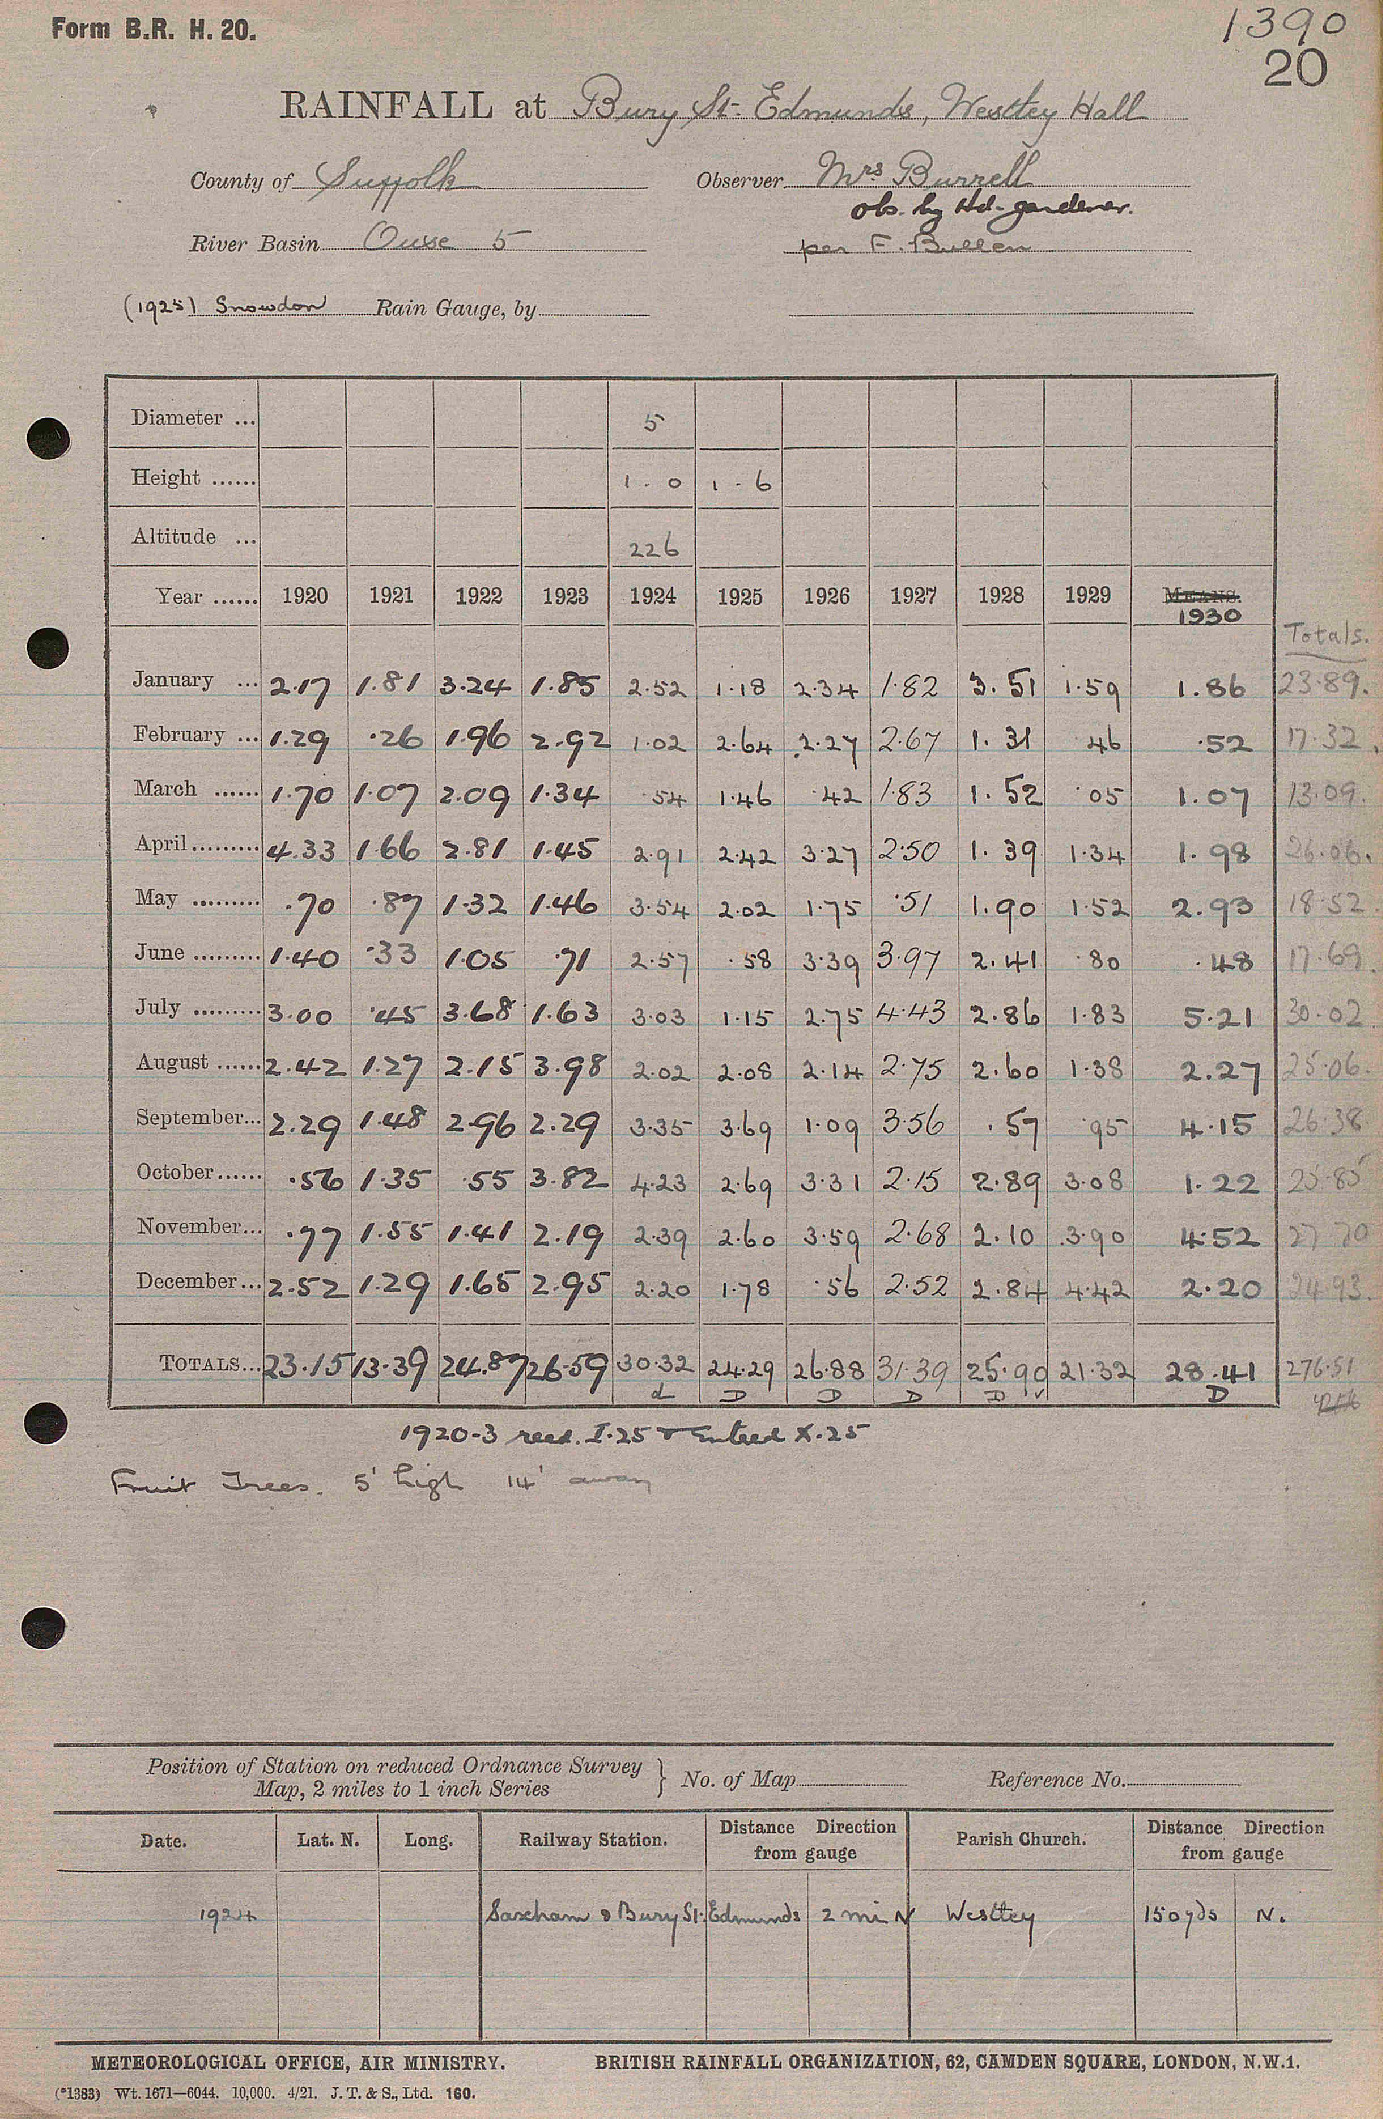 Form B.R. H. 20.
1390
20
RAINFALL at Bury St. Edmunds, Westley Hall
County of Suffolk Observer Mrs Burrell
obs. by Hd-gardener.
River Basin Ouse 5 per F. Bullen
(1925) Snowdon Rain Gauge, by
Diameter ... 5
Height ...... 1 . 0 1 - 6
Altitude ... 226
Year ...... 1920 1921 1922 1923 1924 1925 1926 1927 1928 1929 MEANS.
1930
Totals.
January ... 2.17 1.81 3.24 1.85 2.52 1.18 2.34 1.82 3.51 1.59 1.86 23.89.
February ... 1.29 .26 1.96 2.92 1.02 2.64 2.27 2.67 1.31 46 .52 17.32.
March ...... 1.70 1.07 2.09 1.34 .54 1.46 .42 1.83 1.52 .05 1.07 13.09.
April ......... 4.33 1.66 2.81 1.45 2.91 2.42 3.27 2.50 1.39 1.34 1.98 26.06.
May ......... .70 .87 1.32 1.46 3.54 2.02 1.75 .51 1.90 1.52 2.93 18.52.
June ......... 1.40 .33 1.05 .71 2.57 .58 3.39 3.97 2.41 .80 .48 17.69.
July ......... 3.00 .45 3.68 1.63 3.03 1.15 2.75 4.43 2.86 1.83 5.21 30.02
August ...... 2.42 1.27 2.15 3.98 2.02 2.08 2.14 2.75 2.60 1.38 2.27 25.06.
September... 2.29 1.48 2.96 2.29 3.35 3.69 1.09 3.56 .57 .95 4.15 26.38
October...... .56 1.35 .55 3.82 4.23 2.69 3.31 2.15 2.89 3.08 1.22 25.85
November... .77 1.55 1.41 2.19 2.39 2.60 3.59 2.68 2.10 3.90 4.52 27.70
December... 2.52 1.29 1.65 2.95 2.20 1.78 .56 2.52 2.84 4.42 2.20 24.93.
TOTALS... 23.15 13.39 24.87 26.59 30.32 24.29 26.88 31.39 25.90 21.32 28.41 276.51
d D D D D v D
1920-3 recd. I.25 & Entered X.25
Fruit Trees. 5' high 14' away
Position of Station on reduced Ordnance Survey
Map, 2 miles to 1 inch Series } No. of Map Reference No.
Date. Lat. N. Long. Railway Station. Distance Direction from gauge Parish Church. Distance Direction from gauge
1924 Saxham & Bury St. Edmunds 2 mi N Westley 150 yds N.
METEOROLOGICAL OFFICE, AIR MINISTRY. BRITISH RAINFALL ORGANIZATION, 62, CAMDEN SQUARE, LONDON, N.W.1.
(*1383) Wt. 1671—6044. 10,000. 4/21. J. T. & S., Ltd. 160.